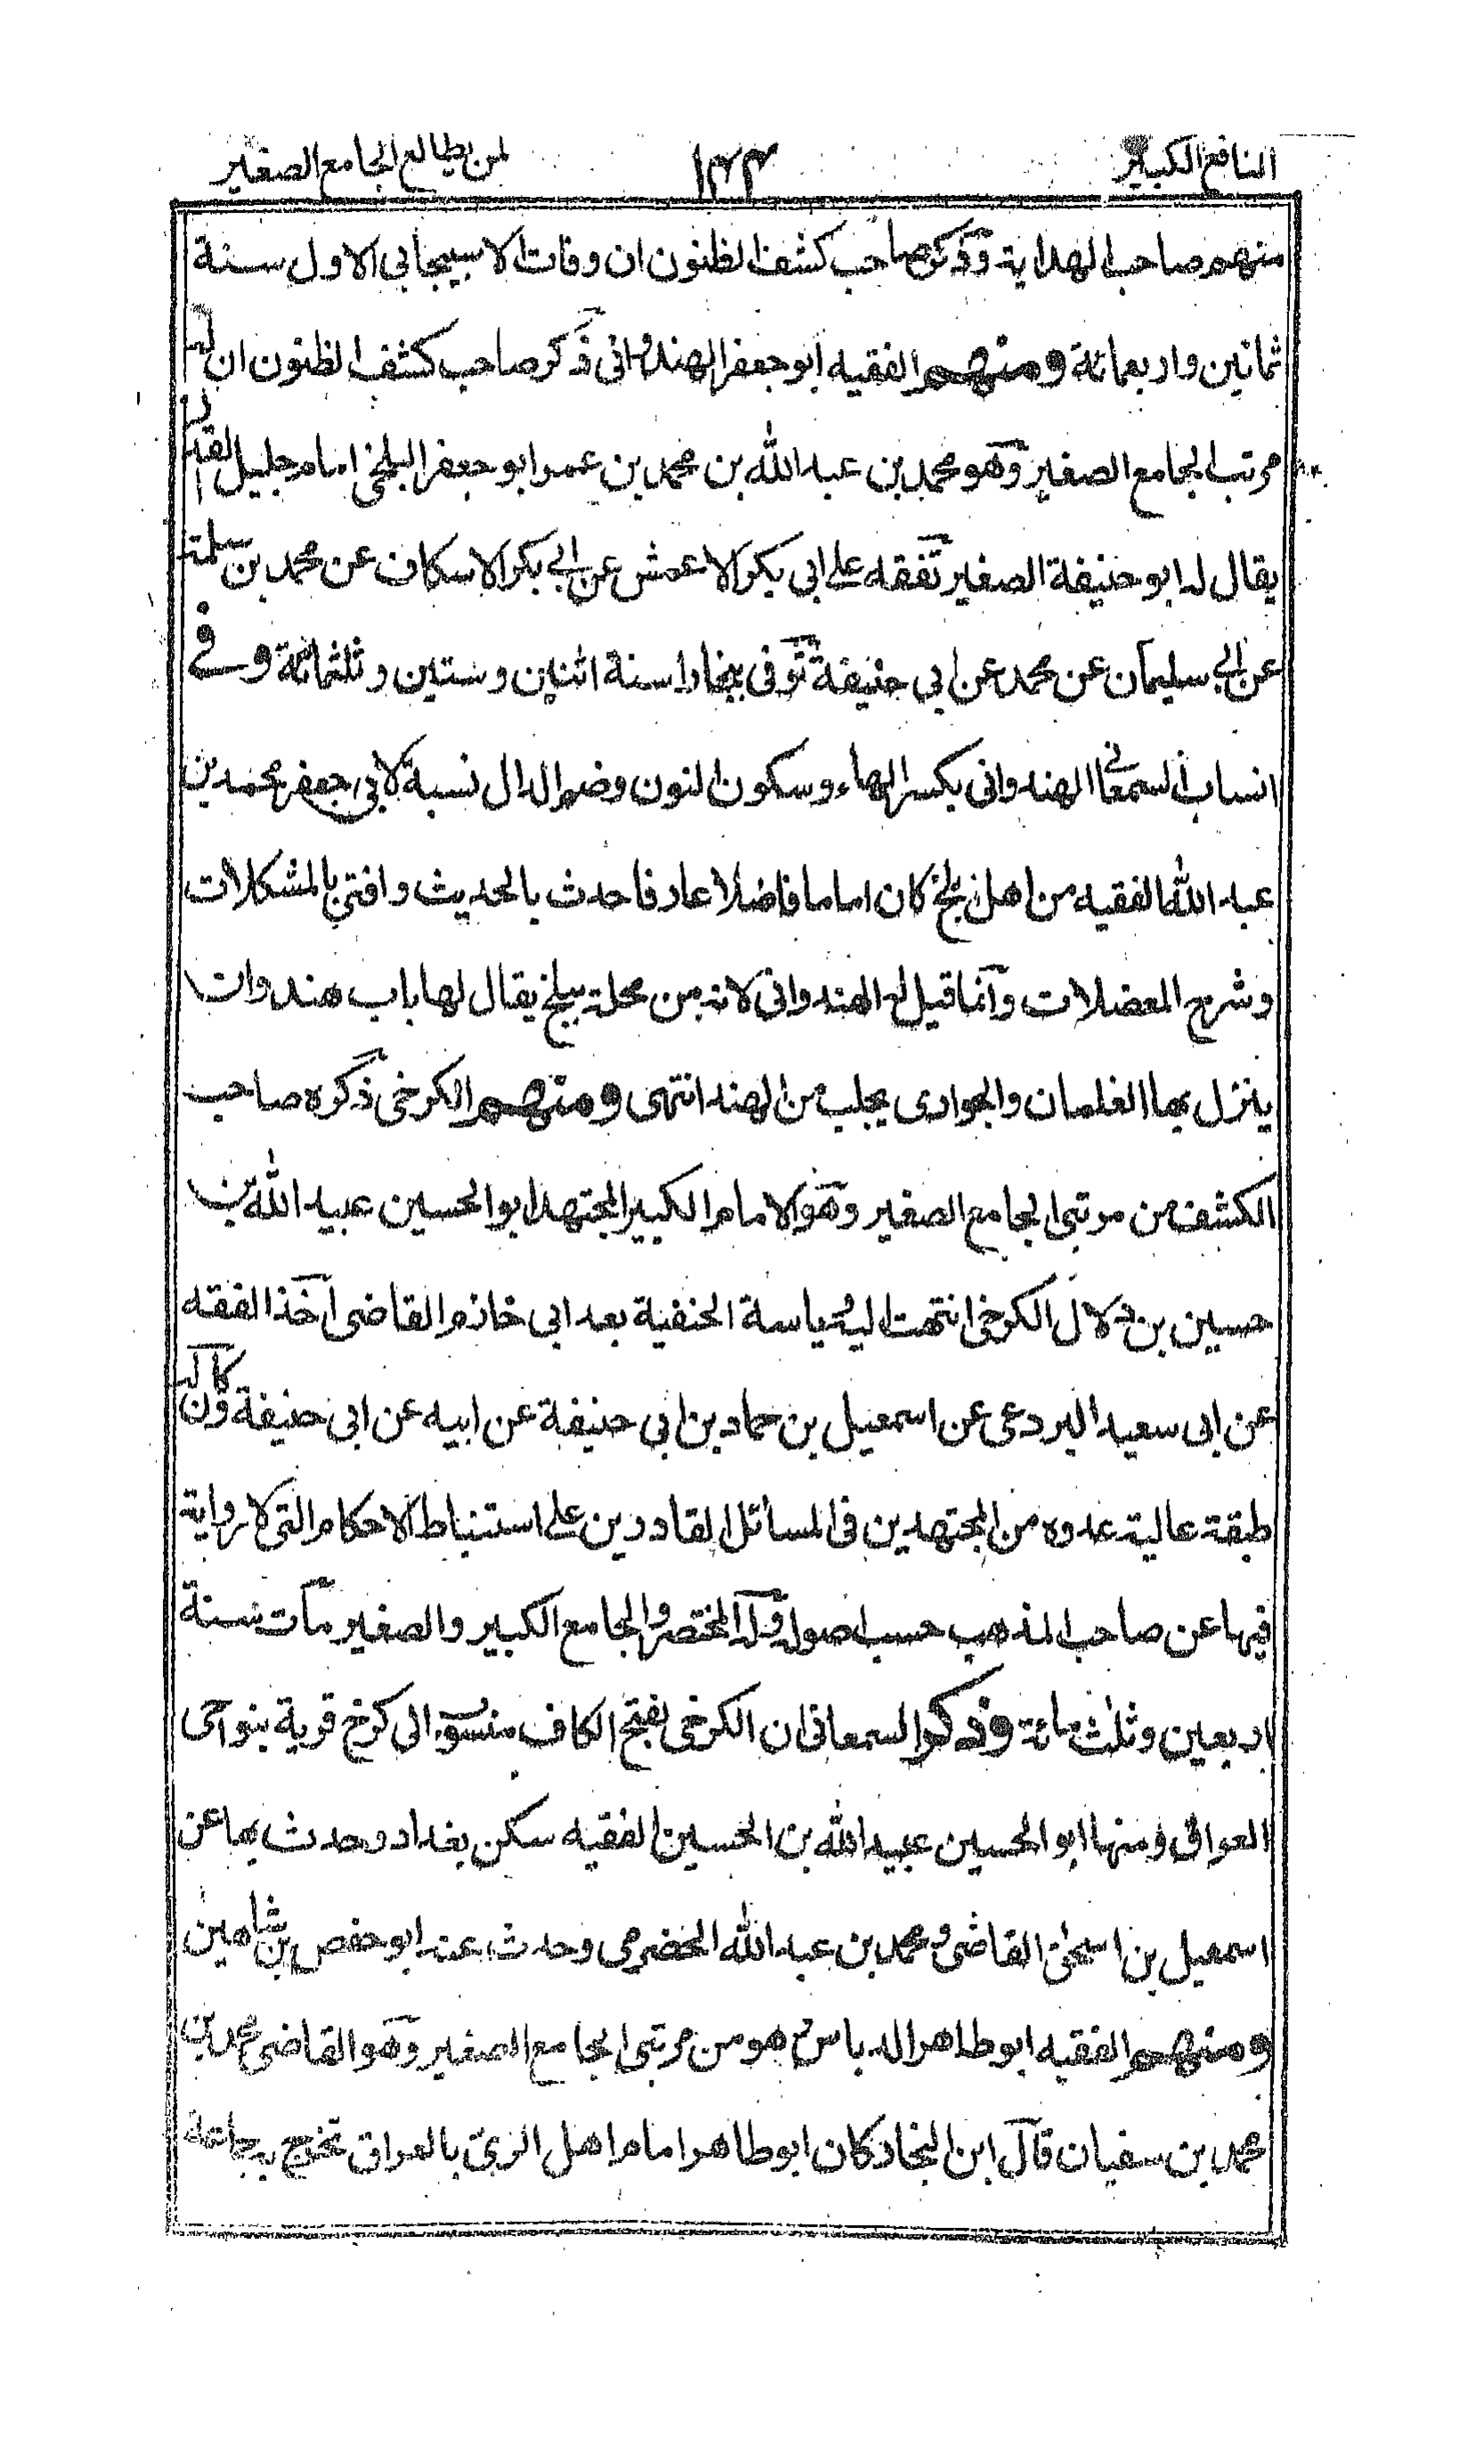 النافع الكبير ١٣٤ لمن يطالع الجامع الصغير
منهم صاحب الهداية وذكر صاحب كشف الظنون ان وفات الاسبيجابي الاول سنة
ثمانين واربعمائة ومنهم الفقيه ابو جعفر الهندواني ذكر صاحب كشف الظنون ان له
مرتب الجامع الصغير وهو محمد بن عبد الله بن محمد بن عمر ابو جعفر البلخي امام جليل القدر
يقال له ابو حنيفة الصغير تفقه على ابي بكر الاعمش عن ابي بكر الاسكاف عن محمد بن سلمة
عن ابي سليمان عن محمد عن ابي حنيفة توفى ببخارا سنة اثنين وستين وثلثمائة وفي
انساب السمعاني الهندواني بكسر الهاء وسكون النون وضم الدال نسبة لابي جعفر محمد بن
عبد الله الفقيه من اهل بلخ كان اماما فاضلا عارفا حدث بالحديث وافتى بالمشكلات
وشرح المعضلات وانما قيل له الهندواني لانه من محلة ببلخ يقال لها باب هندوان
ينزل بها الغلمان والجواري يجلب من الهند انتهى ومنهم الكرخي ذكره صاحب
الكشف من مرتبي الجامع الصغير وهو الامام الكبير المجتهد ابو الحسين عبيد الله بن
حسين بن دلال الكرخي انتهت اليه رياسة الحنفية بعد ابي خازم القاضي اخذ الفقه
عن ابي سعيد البردعي عن اسمعيل بن حماد بن ابي حنيفة عن ابيه عن ابي حنيفة وكان له
طبقة عالية عدوه من المجتهدين في المسائل القادرين على استنباط الاحكام التي لا رواية
فيها عن صاحب المذهب حسب اصوله وله المختصر والجامع الكبير والصغير مات سنة
اربعين وثلث مائة وذكر السمعاني ان الكرخي بفتح الكاف منسوب الى كرخ قرية بنواحى
العراق ومنها ابو الحسين عبيد الله بن الحسين الفقيه سكن بغداد وحدث بها عن
اسمعيل بن اسحق القاضي ومحمد بن عبد الله الحضرمي وحدث عنه ابو حفص بن شاهين
ومنهم الفقيه ابو طاهر الدباس هو من مرتبى الجامع الصغير وهو القاضي محمد بن
محمد بن سفيان قال ابن النجار كان ابو طاهر امام اهل الرئ بالعراق تخرج به جماعة